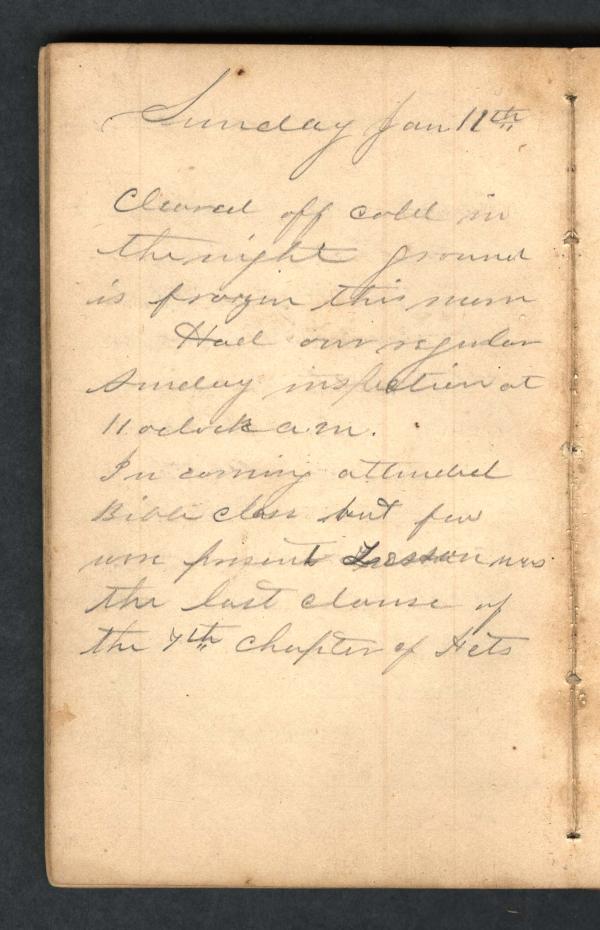 Sunday Jan 11th
Cleared off cold in
the night ground
is frozen this morn
Had our regular
Sunday inspection at
11 oclock a.m.
In evening attended
Bible class but few
were present Lesson was
the last clause of
the 7th chapter of Acts